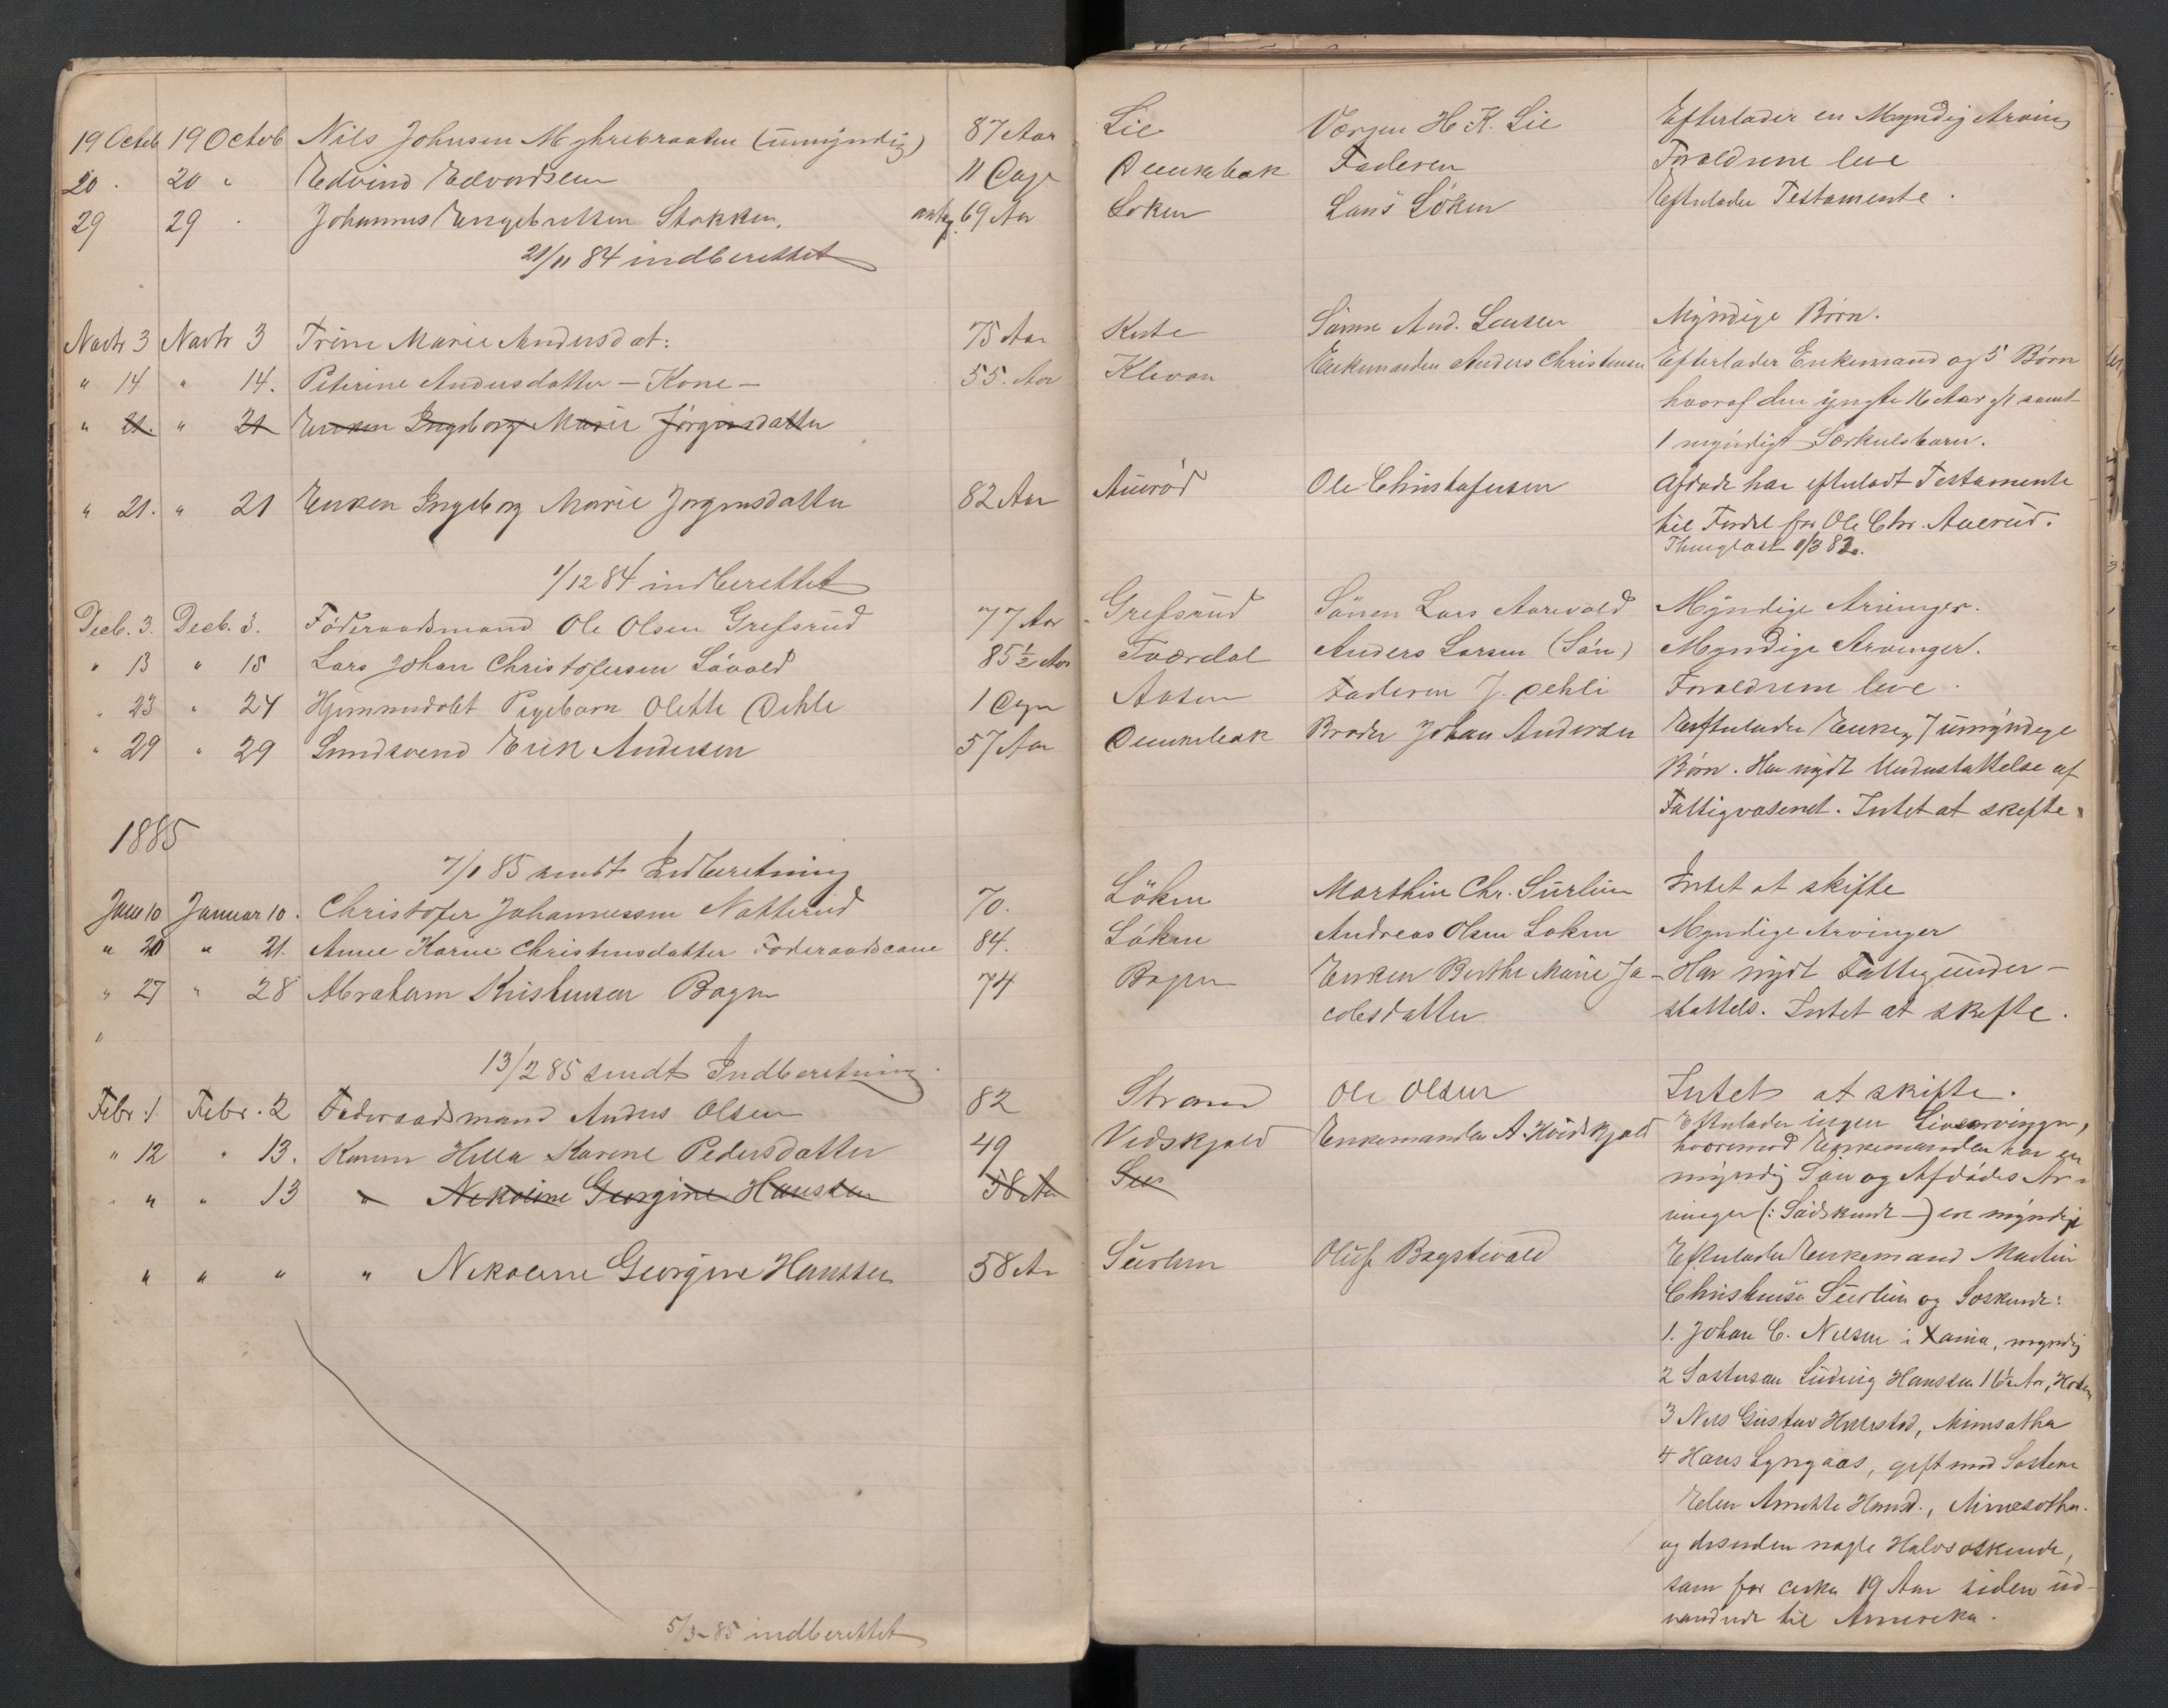 19 Octob 19 Octob Nils Johnsen Myhrebraaten (umyndig) 87 Aar Lie Vergen H. K. Lie Efterlader en Myndig Arving
20 . 20 " Edvind Edvardsen 11 Dage Faderen Forældrene leve
29 29 . Johannes Engebretsen Stokken. antag. 69 Aar Löken Lars Löken Efterlader Testamente .
21/11 84 indberettet
Novbr 3 Novbr 3 Trine Marie Andersdat: 75 Aar Sönnen And. Myndige Börn.
" 14 " 14. Peterine Andersdatter - Kone - 55. Aar Klevan Enkemanden Anders Christensen Efterlader Enkemand og 5 Börn
hvoraf den yngste 16 Aar gl samt
" 21. " 21 Enken Ingeborg Marie Jörgensdatter 1 myndigt Særkulsbarn.
" 21. " 21 Enken Ingeborg Marie Jörgensdatter 82 Aar Aueröd Ole Christofersen Afdöde har efterladt Testamente
til Fordel for Ole Chr. Auerud.
Thinglæst 1/3 82.
1/12 84 indberettet
Decb. 3. Decb. 3. Föderaadsmand Ole Olsen Grefsrud 77 Aar Grefsrud Sönen Lars Aarevold Myndige Arvinger.
" 13 " 15 Lars Johan Christofersen Lövold 85½ Aar Tværdal Anders Larsen (Sön) Myndige Arvinger.
" 23 " 24 Hjemmedöbt Pigebarn Olette Oehli 1 Dgn Aasen Faderen J. Oehli Forældrene leve .
" 29 " 29 Erik Andersen 57 Aar Broder Johan Andersen Efterlader Enke, 7 umyndige
Börn. Har nydt Understøttelse af
Fattigvæsenet. Intet at skifte.
1885
7/1 85 sendt Indberetning
Janu 10 Januar 10. Christofer Johannessen Natterud 70. Löken Marthin Chr. Surlien Intet at skifte
" 20 " 21. Anne Karine Christensdatter Föderaadscone 84. Löken Andreas Olsen Löken Myndige Arvinger
" 27 " 28 Abraham Kristensen Bogen 74 Bogen Enken Berthe Marie Ja- Har nydt Fattigunder-
cobsdatter støttels. Intet at skifte.
"
13/2 85 sendt Indberetning.
Febr. 1. Febr. 2 Føderaadsmand Anders Olsen 82 Strand Ole Olsen Intet at skifte.
" 12 " 13. Konen Helle Karine Pedersdatter 49 Vedskjold Enkemanden A. Hvidskjold Efterlader ingen Livsarvinger,
hvorimod Enkemanden har en
" " 13 " Nikoline Georgine Hanssen 58 Aar Sur myndig Sön og Afdödes Ar-
vinger (: Södskende -) ere myndige
" " " " Nikoline Georgine Hanssen 58 Aar Surlien Oluf Bagstevold Efterlader Enkemand Martin
Christensen Surlien og Søskende:
1. Johan C. Nilsen i Xania, myndig
2 Søstersøn Ludvig Hanssen 16½ Aar,
3 Nils Gustav Minsotha
4 Hans Lyngaas, gift med Søsteren
Elen Annette Hansd., Minesotha.
og desuden nogle Halvsøskende,
som for cirka 19 Aar siden ud-
vandrede til Amerika.
5/3 - 85 indberettet